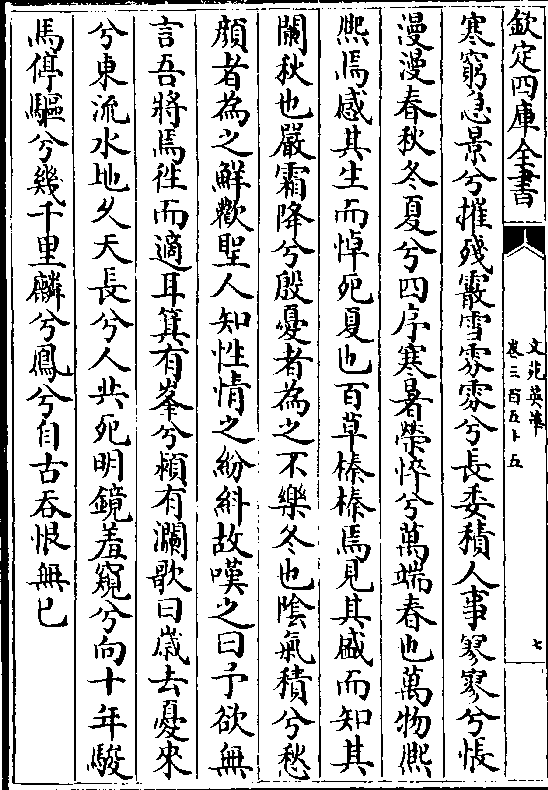 欽定四庫全書
文苑英華
卷三百五十五
七
寒窮急景兮摧殘霰雪雰雰兮長委積人事寥寥兮悵
漫漫春秋冬夏兮四序寒暑榮悴兮萬端春也萬物熙
熙焉感其生而悼死夏也百草榛榛焉見其盛而知其
闌秋也嚴霜降兮殷憂者為之不樂冬也陰氣積兮愁
顔者為之鮮歡聖人知性情之紛糾故嘆之曰予欲無
言吾將焉往而適耳箕有峯兮潁有瀾歌曰歲去憂來
兮東流水地久天長兮人共死明鏡羞窺兮向十年駿
馬停驅兮幾千里麟兮鳳兮自古吞恨無已